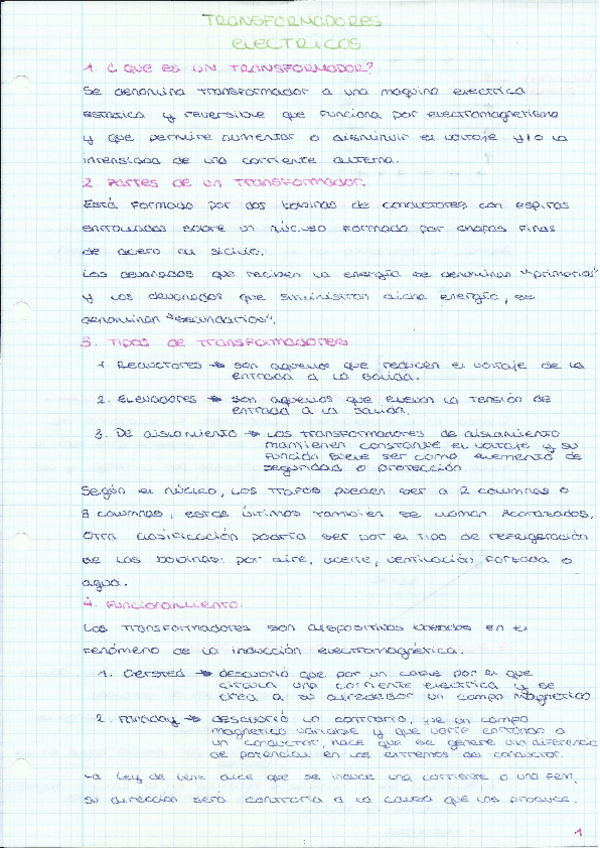 TRANSFORMADORES
ELECTRICOS
1. ¿ QUE ES UN TRANSFORMADOR?
Se denomina transformador a una maquina electrica
estatica y reversible que funciona por electromagnetismo
y que permite aumentar o disminuir el voltaje y/o la
intensidad de una corriente alterna.
2 Partes de un transformador.
Está formado por dos bobinas de conductores con espiras
enrolladas sobre un núcleo formado por chapas finas
de acero al silicio.
Los devanados que reciben la energía se denominan "primarios"
y los devanados que suministran dicha energía, se
denominan "secundarios".
3. Tipos de transformadores
1. Reductores → son aquellos que reducen el voltaje de la
entrada a la salida.
2. Elevadores → son aquellos que elevan la tensión de
entrada a la salida.
3. De aislamiento → los transformadores de aislamiento
mantienen constante el voltaje y su
función suele ser como elemento de
seguridad o protección
Según el núcleo, los trafos pueden ser a 2 columnas o
3 columnas, estos últimos también se llaman Acorazados,
Otra clasificación podría ser por el tipo de refrigeración
de las bobinas: por aire, aceite, ventilación forzada o
agua.
4. Funcionamiento.
Los transformadores son dispositivos basados en el
fenómeno de la inducción electromagnética.
1. Oersted → descubrió que por un cable por el que
circula una corriente electrica y se
crea a su alrededor un campo magnetico
2. Faraday → descubrió lo contrario, que un campo
magnetico variable y que varie cortando a
un conductor, hace que se genere una diferencia
de potencial en los extremos del conductor.
La Ley de Lenz dice que se induce una corriente o una fem,
su dirección será contraria a la causa que los produce.
1